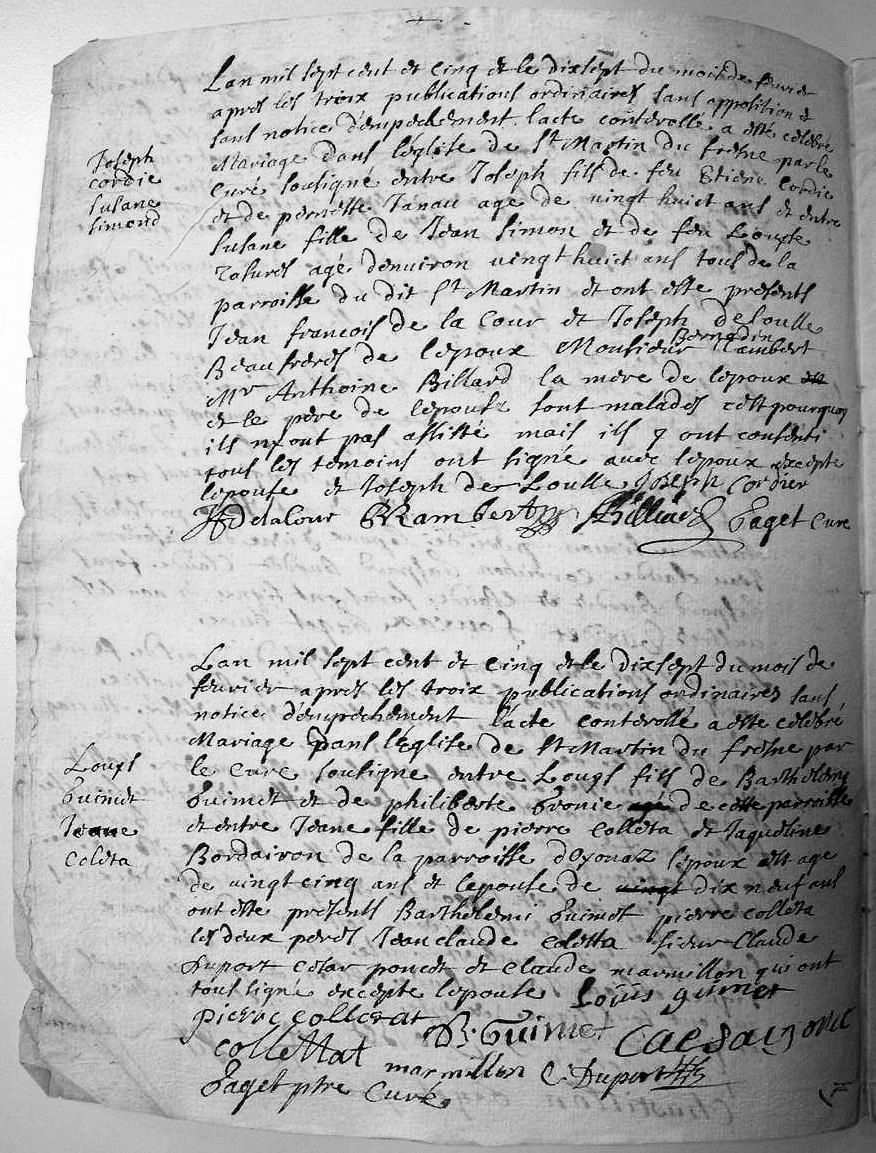 Lan mil sept cent et cinq et le dixsept du mois de feurier
apres les troix publications ordinaires sans opposition et
sans notice d'empechement. l'acte contorollé a esté célébré
Mariage dans l'église de St Martin du fresne par le
Curé sousigné entre Joseph fils de feu Etiene Cordie
et de pernette Janau age de vingt huict ans et entre
Susane fille de Jean Simon et de feu Louyse
agé denuiron vingt huict ans tous de la
parroisse du dit St Martin et ont esté presents
Jean francois de la Cour et Joseph de Loulle
Beaufreres de lepoux Monsieur Bernardin Rambert
Mr Anthoine Billard la mere de lepoux
et le pere de lepouse sont malades cest pourquoy
ils ny ont pas assisté mais ils y ont consenti
tous les temoins ont signé auec lepoux excepte
lepouse et Joseph de Loulle Joseph Cordier
delacour BRambert Billiard Paget Cure
Joseph
cordie
susane
simond
Lan mil sept cent et cinq et le dixsept du mois de
feurier apres les troix publications ordinaires sans
notice d'empechement l'acte contorollé a esté célébré
Mariage dans l'Eglise de St Martin du fresne par
le Curé sousigne entre Louys fils de Barthelemy
Guimet et de philiberte de cette parroisse
et entre Jeane fille de pierre Colleta et Jaqueline
Bordairon de la parroisse dOyonaz lepoux est age
de vingt cinq ans et lepouse de dix neuf ans
ont esté presents Barthelemi Guimet pierre colleta
les deux peres Jean claude coletta sieur Claude
Duport cesar poncet et claude marmillon qui ont
tous signé excepte lepouse Loüis guimet
pierre colletat B. Guimet Caesar
collettat marmillon C. Duport
Paget ptre Curé
Louys
Guimet
Jeane
Coleta